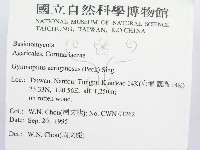 國立自然科學博物館
NATIONAL MUSEUM OF NATURAL SCIENCE
TAICHUNG, TAIWAN, R.O.CHINA
Basidiomycota
Agaricales, Cortinariaceae
Gymnopilus aeruginosus (Peck) Sing.
Loc.: Taiwan, Nantou, 14K
23.53N, 120.56E, alt. 1,250m;
on rotten wood.
Col.: W.N. Chou No. CWN
Date: Sep. 20, 1995
Det.: W.N. Chou